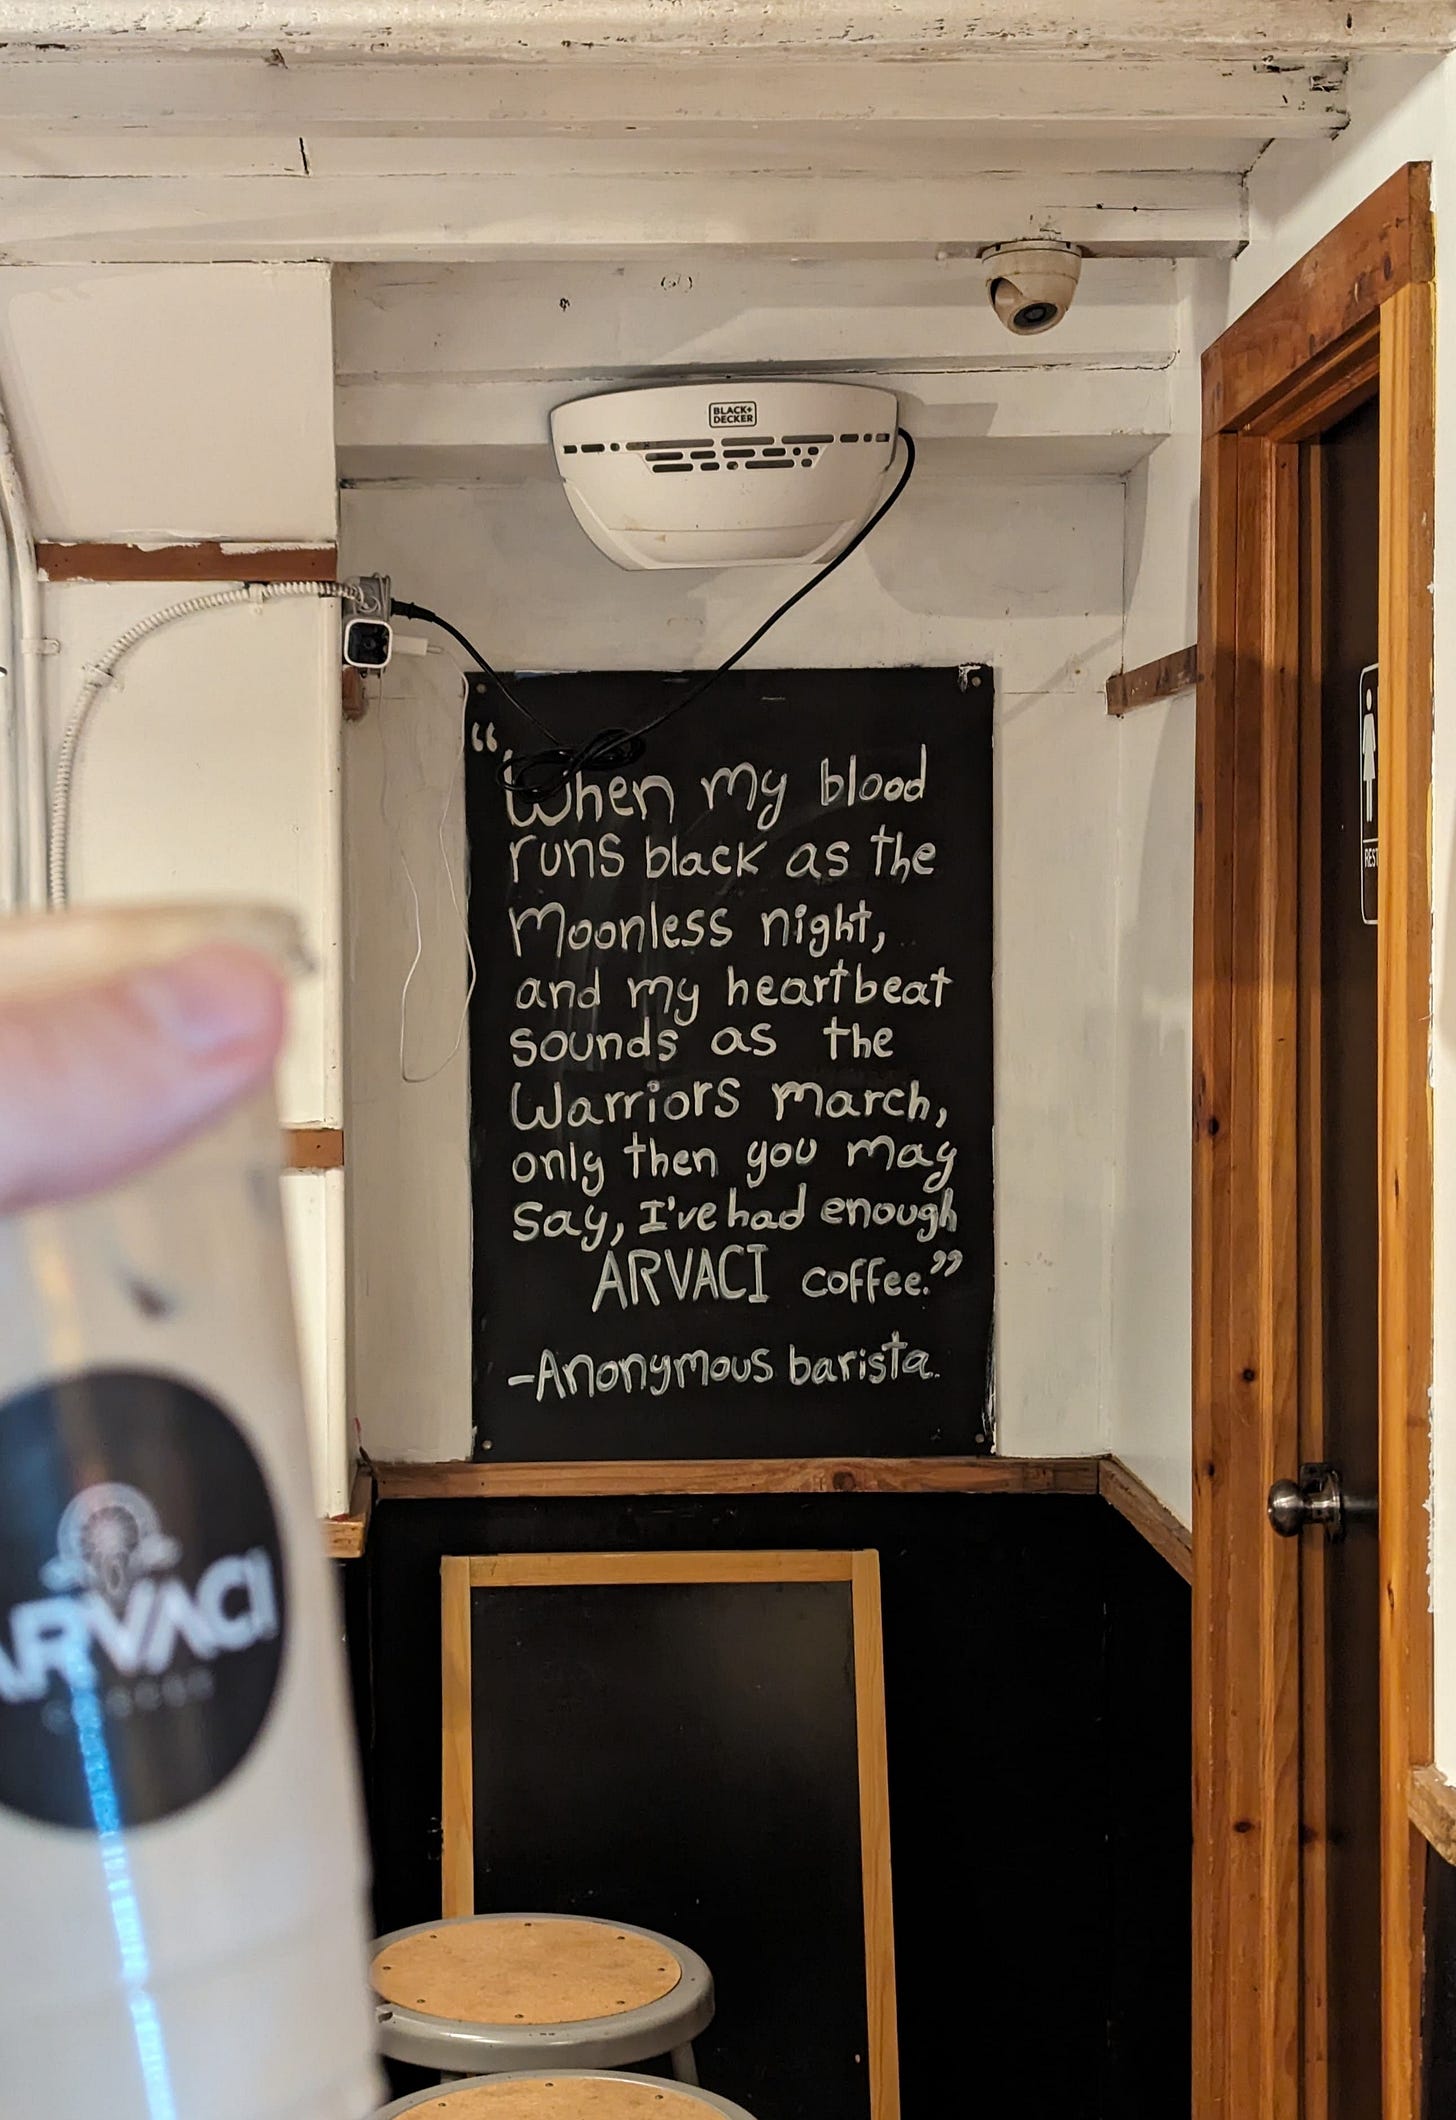 BLACK+
DECKER
“When my blood
runs black as the
Moonless night,
and my heartbeat
sounds as the
Warriors march,
only then you may
say, I've had enough
ARVACI coffee.”
-Anonymous barista.
ARVACI